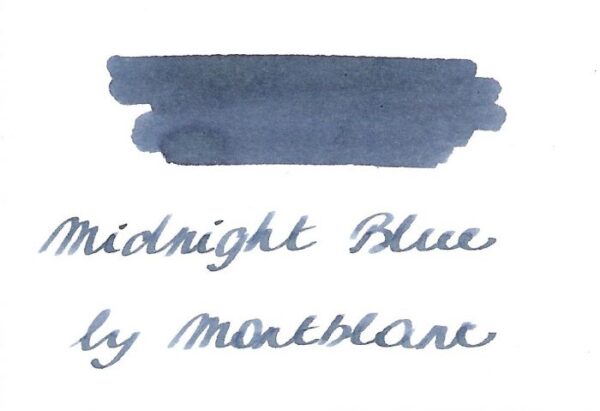 Midnight Blue
by Montblanc